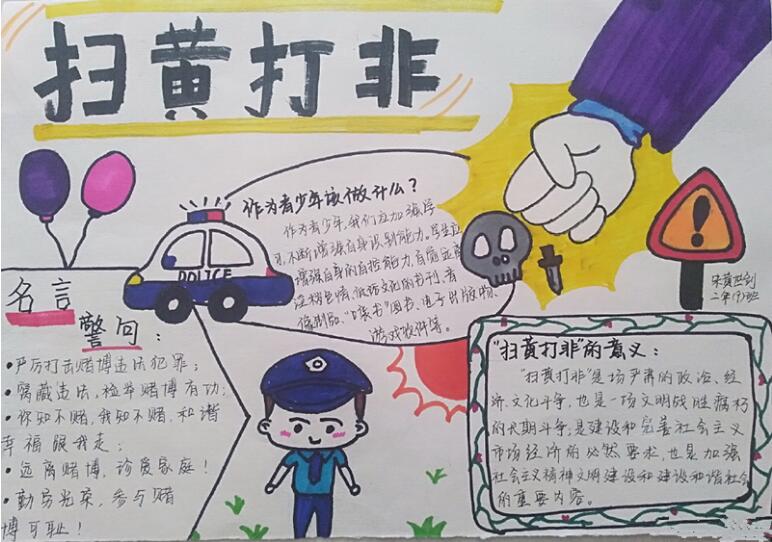 扫黄打非
作为青少年该做什么？
作为青少年，我们应加强学
习，不断增强自身识别能力。学生应
增强自身的自控能力，自觉远离
淫秽色情、低俗文化的书刊、音
像制品、"口袋书"图书、电子出版物、
游戏软件等。
POLICE
名言
警句：
·严厉打击赌博违法犯罪；
·窝藏违法，检举赌博有功；
·你知不赌，我知不赌，和谐
幸福跟我走；
·远离赌博，珍爱家庭！
·勤劳光荣，参与赌
博可耻！
二年(9)班
"扫黄打非"的意义：
"扫黄打非"是场严肃的政治、经
济、文化斗争，也是一场文明战胜腐朽
的长期斗争，是建设和完善社会主义
市场经济的必然要求，也是加强
社会主义精神文明建设和建设和谐社会
的重要内容。